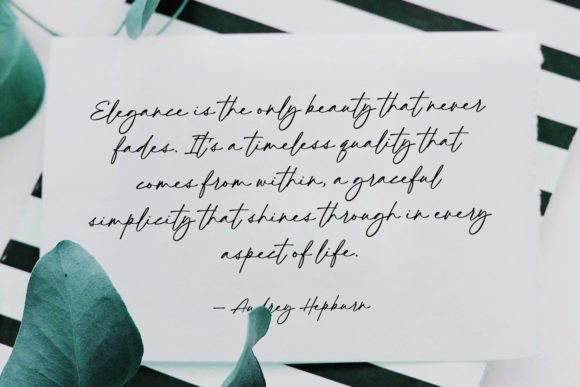 Elegance is the only beauty that never
fades. It's a timeless quality that
comes from within, a graceful
simplicity that shines through in every
aspect of life.
— Audrey Hepburn